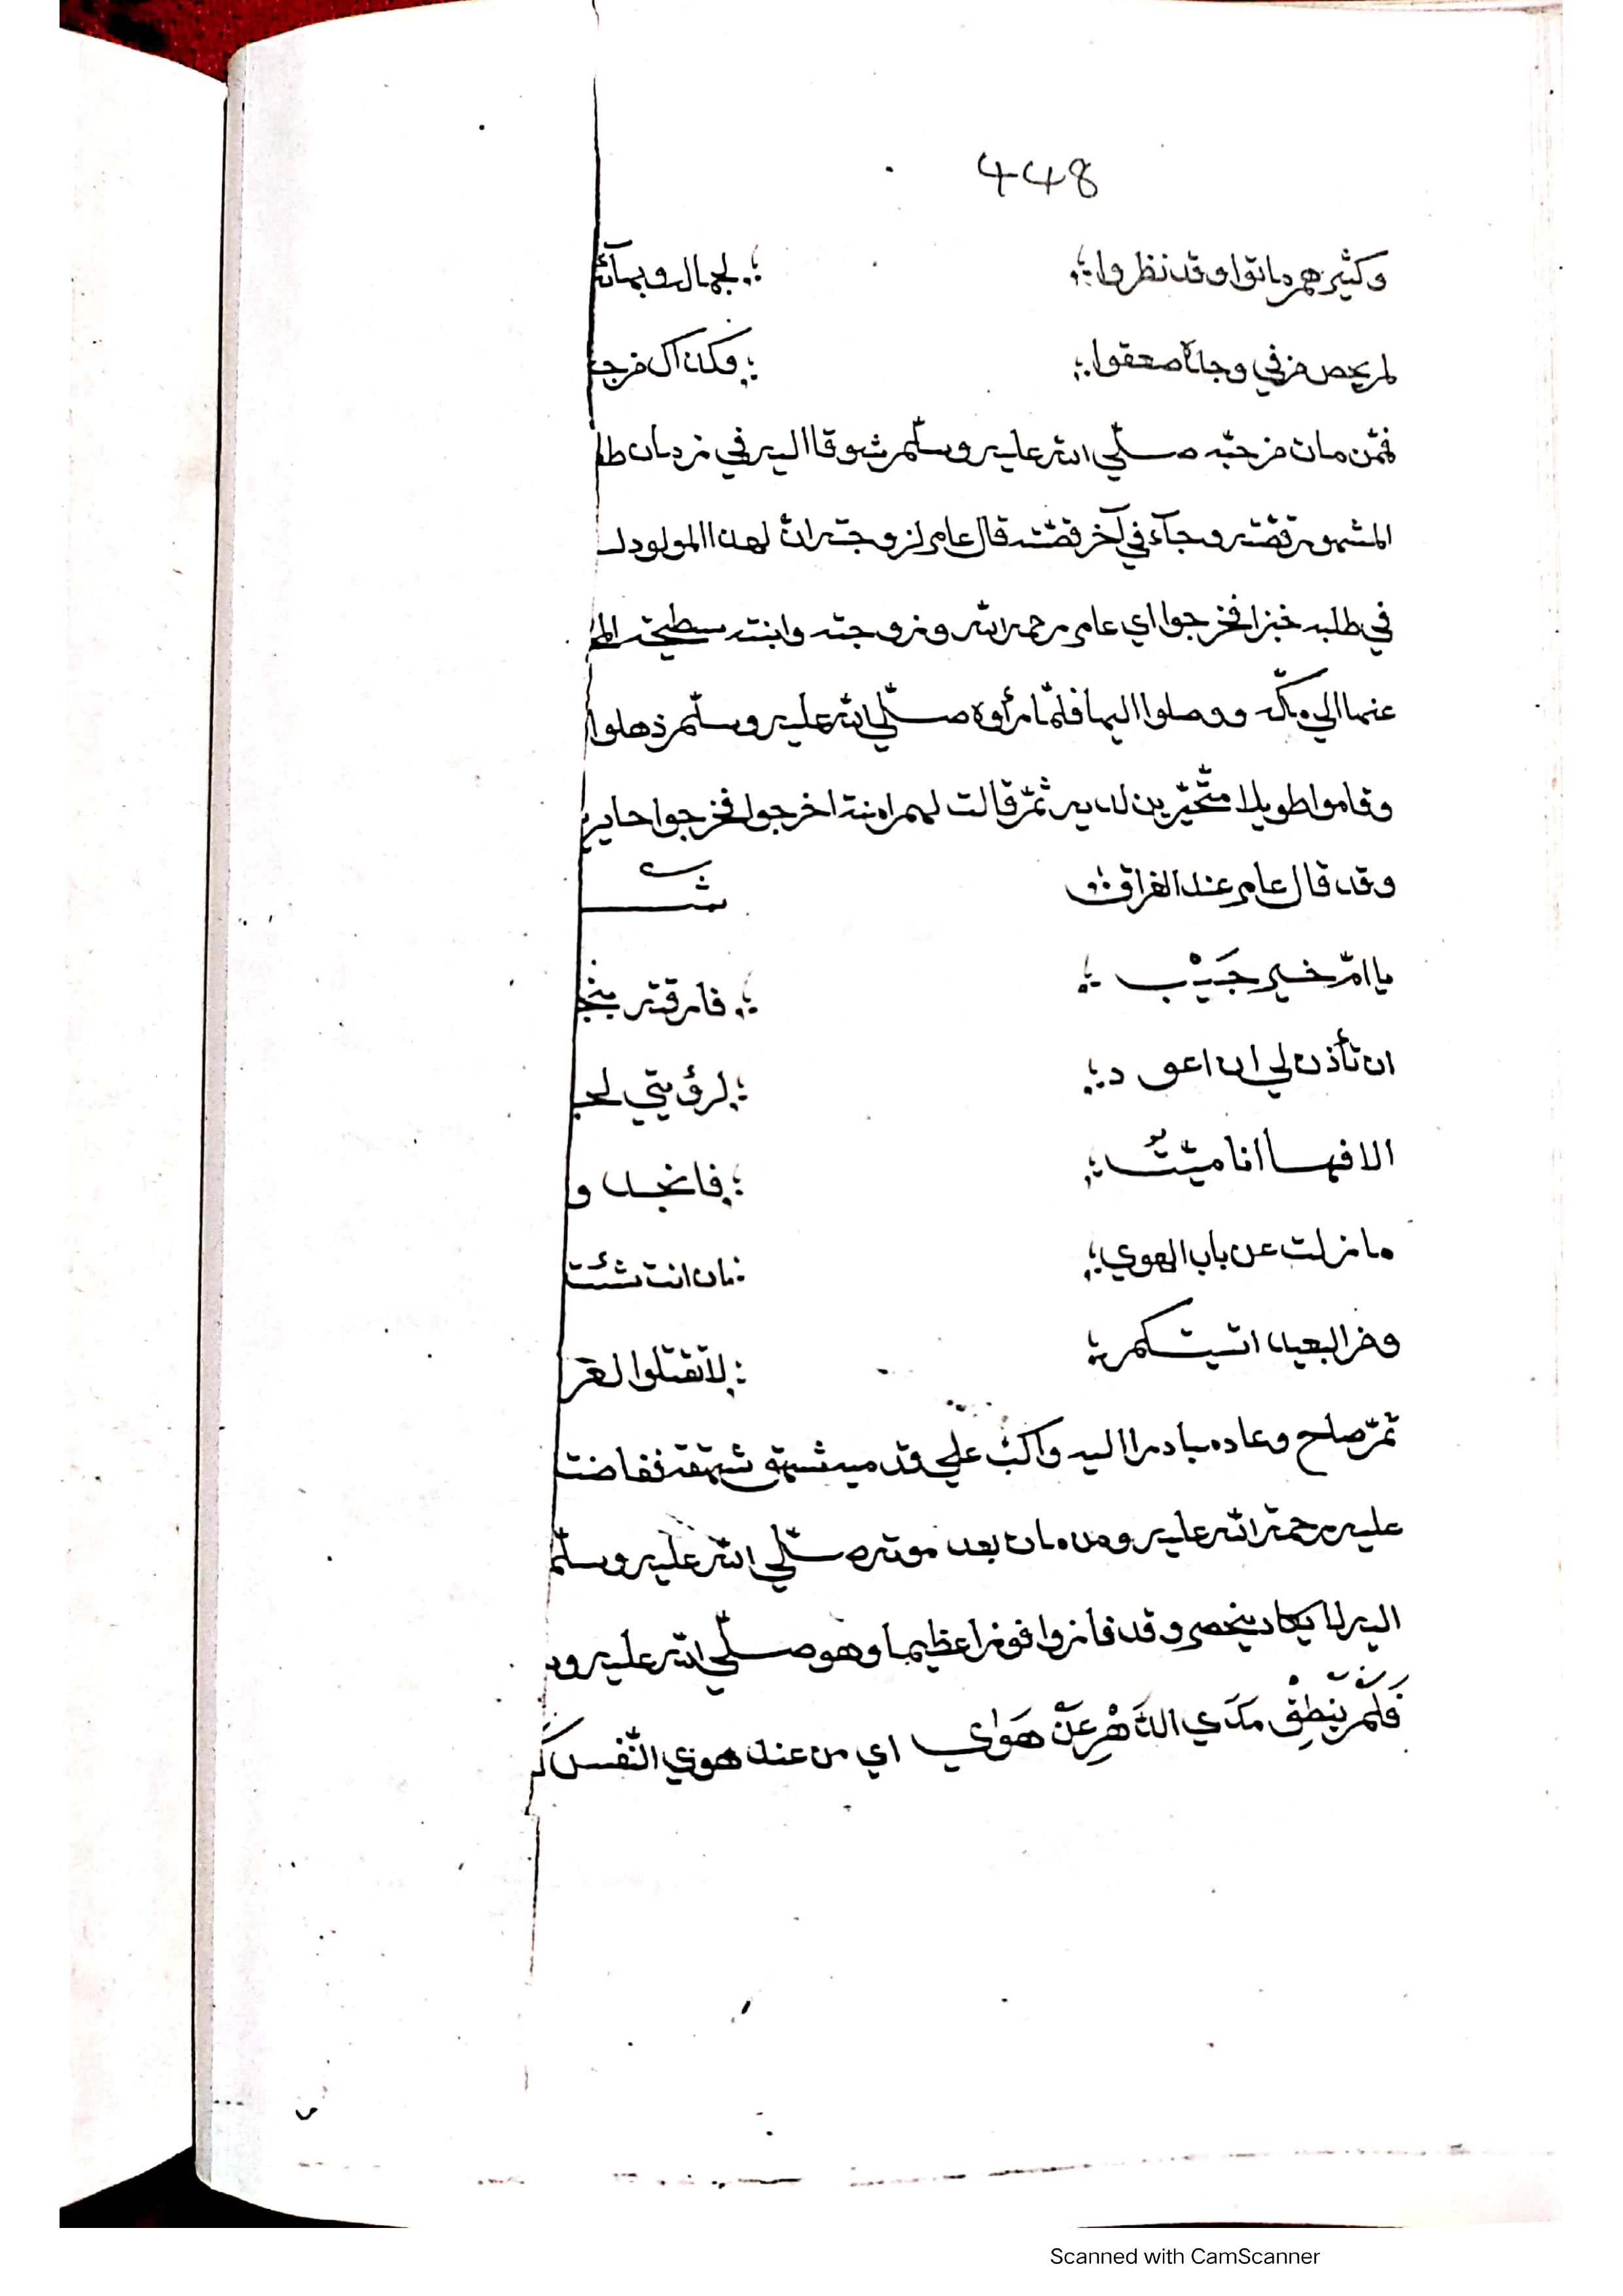 448
وكثيرهم ماتوا وقد نظروا ؛ ؛ لجمال وبهائه
لم يحص من في وجاه صعقوا ؛ ؛ فكان آك من جـ
فممّن مات من حبّه صلّي الله عليه وسلّم شوقا اليه في زمان طـ
المشهور قصّته وجآء في آخر قصّته قال عامر لزوجته انّ لهذا المولود لـ
في طلبه خبزا فخرجوا اي عامر رحمه الله وزوجته وابنته سطيحة المـ
عنها الي مكّة ووصلوا اليها فلمّا رأوه صلّي الله عليه وسلّم ذهلوا
وقاموا طويلا متحيّرين لديه ثمّ قالت لهم امنة اخرجوا فخرجوا حايريـ
وقد قال عامر عند الفراق شـ
يا امّ خير حبيب ؛ ؛ فارقته بنحـ
ان تأذن لي ان اعود ؛ ؛ لرؤيتي لحـ
الا فها انا ميّت ؛ ؛ فانجد و
ما زلت عن باب الهوي ؛ ؛ ان انت شئت
ومن البعيد اتيتكم ؛ ؛ لا تقتلوا الغر
ثمّ صاح وعاده مبادرا اليه واكبّ علي قدميه فشهق شهقة ففاضت
عليه رحمة الله عليه ومن مات بعد موته صلّي الله عليه وسلّم
اليه لا يكاد ينحصر وقد فازوا فوزا عظيما وهو صلّي الله عليه و
فَلَمْ يَنْطِقْ مَدَي الدَّهْرِ عَنْ هَوَاي اي من عند هوي النّفس كَـ
Scanned with CamScanner